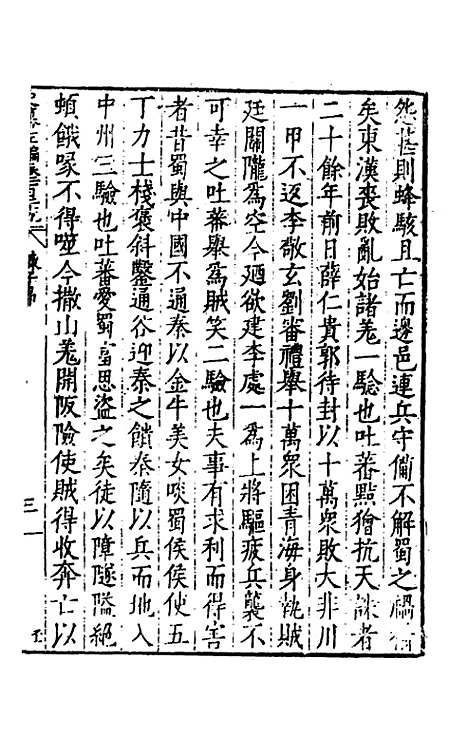 怨甚則蜂駭且亡而邊邑連兵守備不解蜀之禍
矣東漢喪敗亂始諸羗一驗也吐蕃黠獪抗天誅者
二十餘年前日薛仁貴郭待封以十萬衆敗大非川
一甲不返李敬玄劉審禮舉十萬衆困青海身執賊
廷關隴爲空今廼欲建李處一爲上將驅疲兵襲不
可幸之吐蕃舉爲賊笑二驗也夫事有求利而得害
者昔蜀與中國不通秦以金牛美女啖蜀侯侯使五
丁力士棧褒斜鑿通谷迎秦之饋秦隨以兵而地入
中州三驗也吐蕃愛蜀富思盜之矣徒以障隧隘絕
頓餓喙不得噬今撤山羗開阪險使賊得收奔亡以
三一